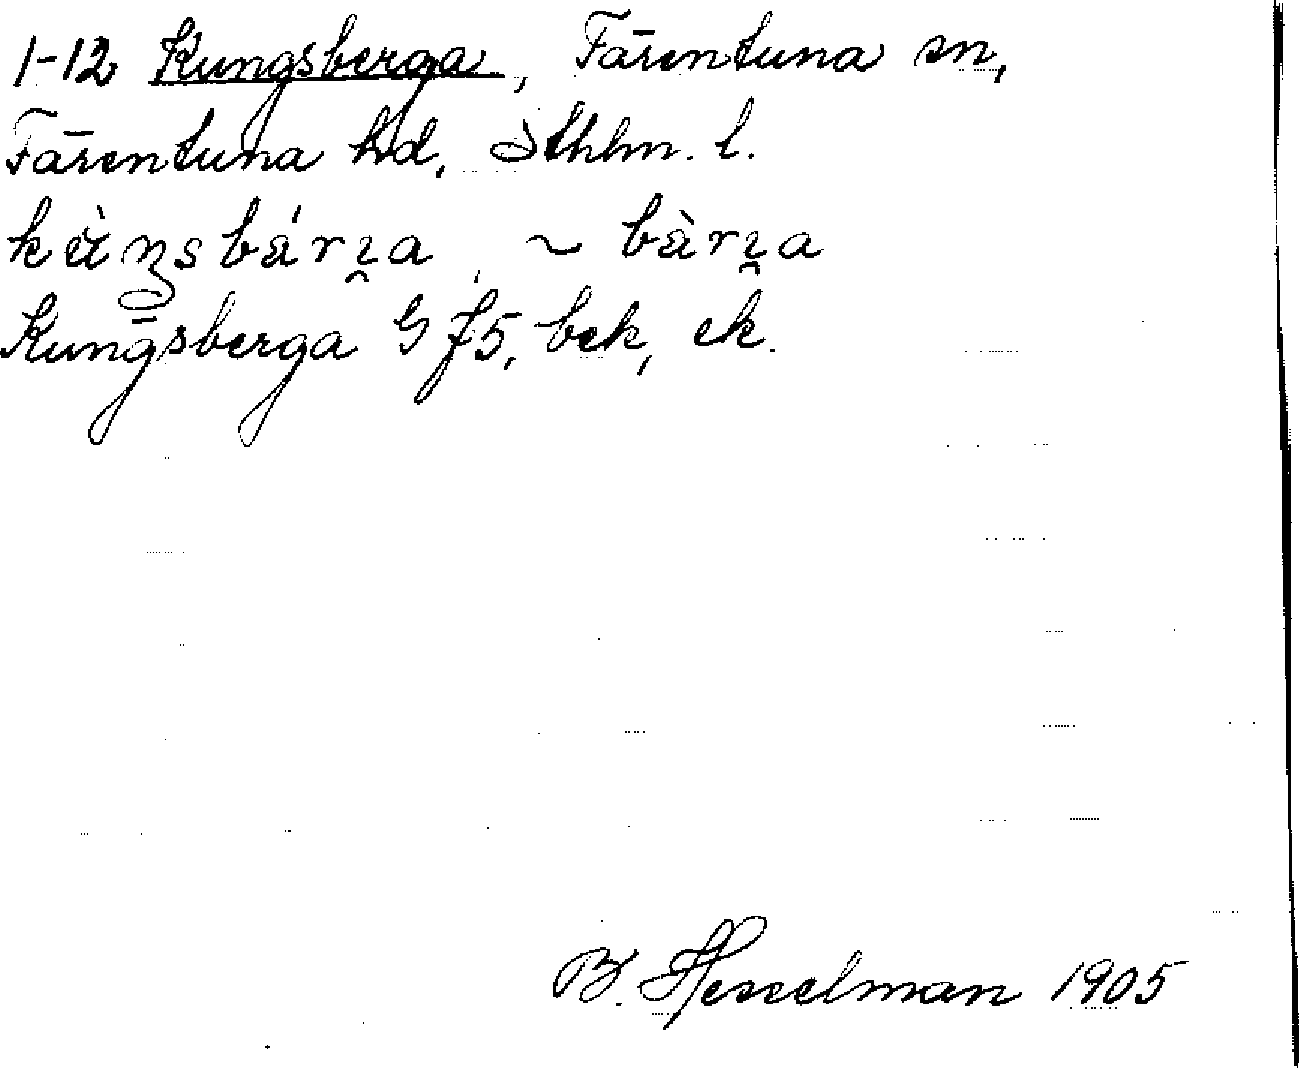 1-12 Kungsberga, Färentuna sn,
Färentuna hd, Sthlm. l.
kùŋsbárɪ̯a, ~ bàrɪ̯a
Kungsberga G J5, bek, ek.
B. Hesselman 1905